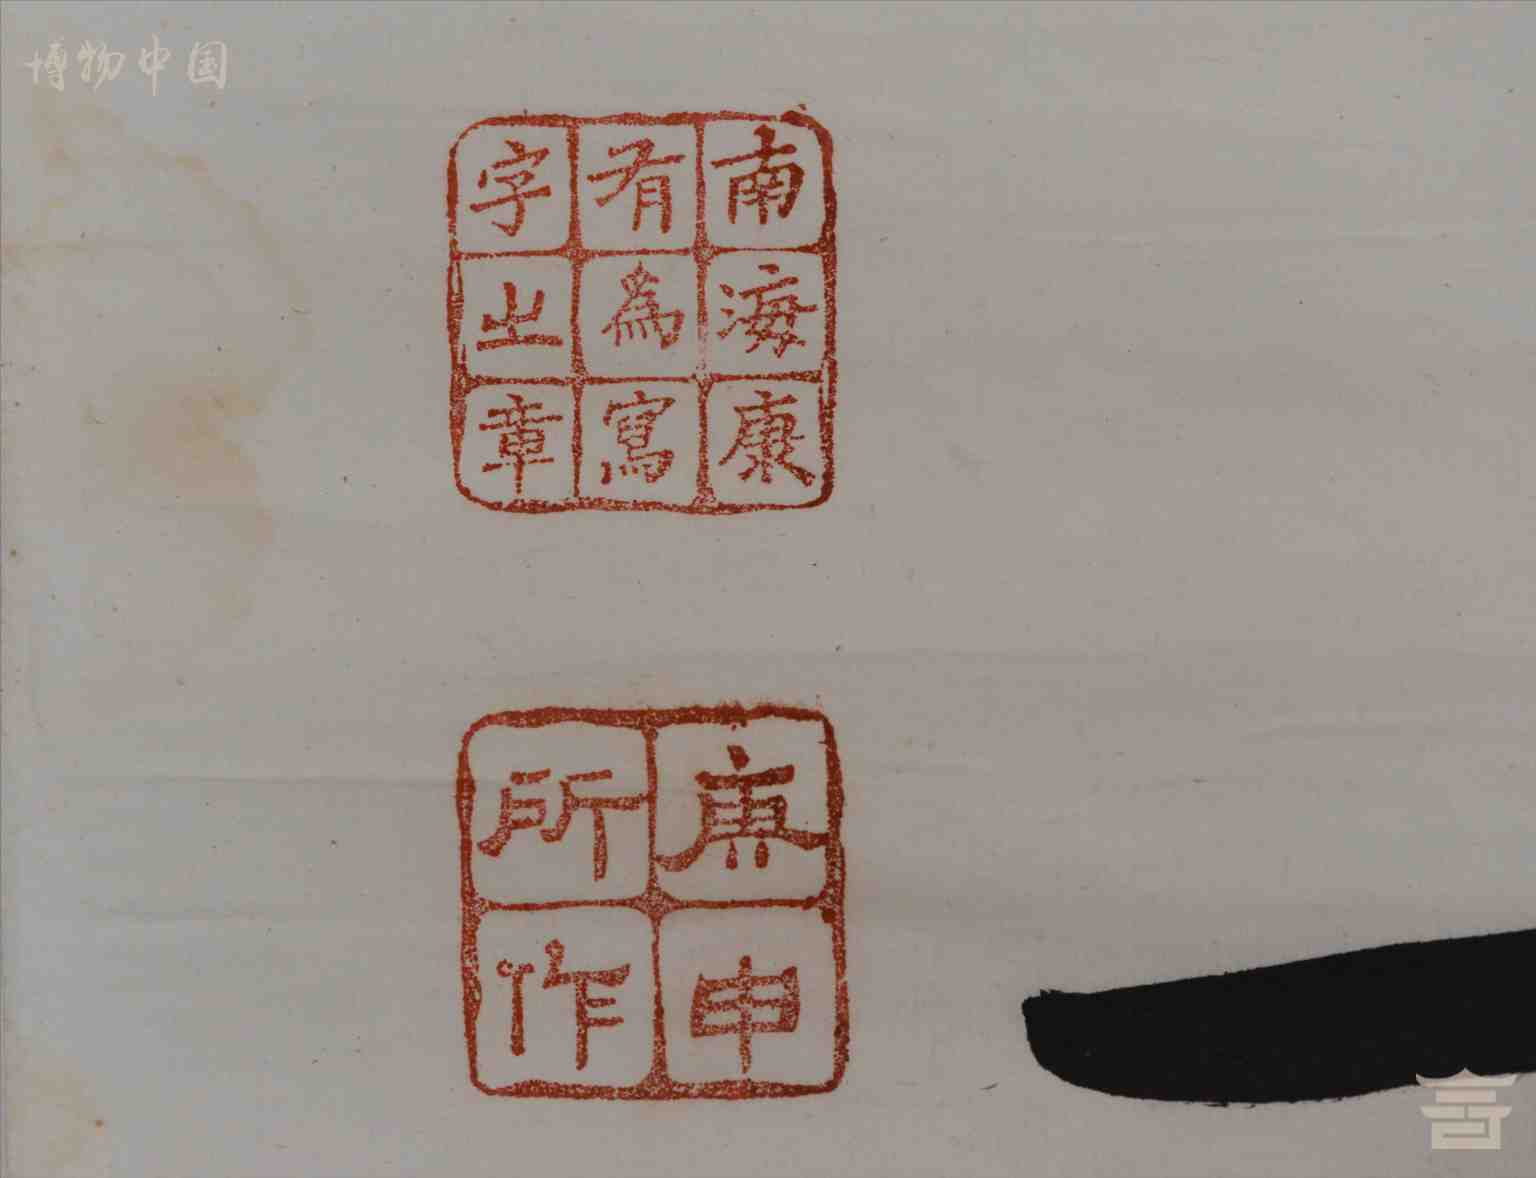 博物中国
南海康
有為寫
字之章
庚申
所作